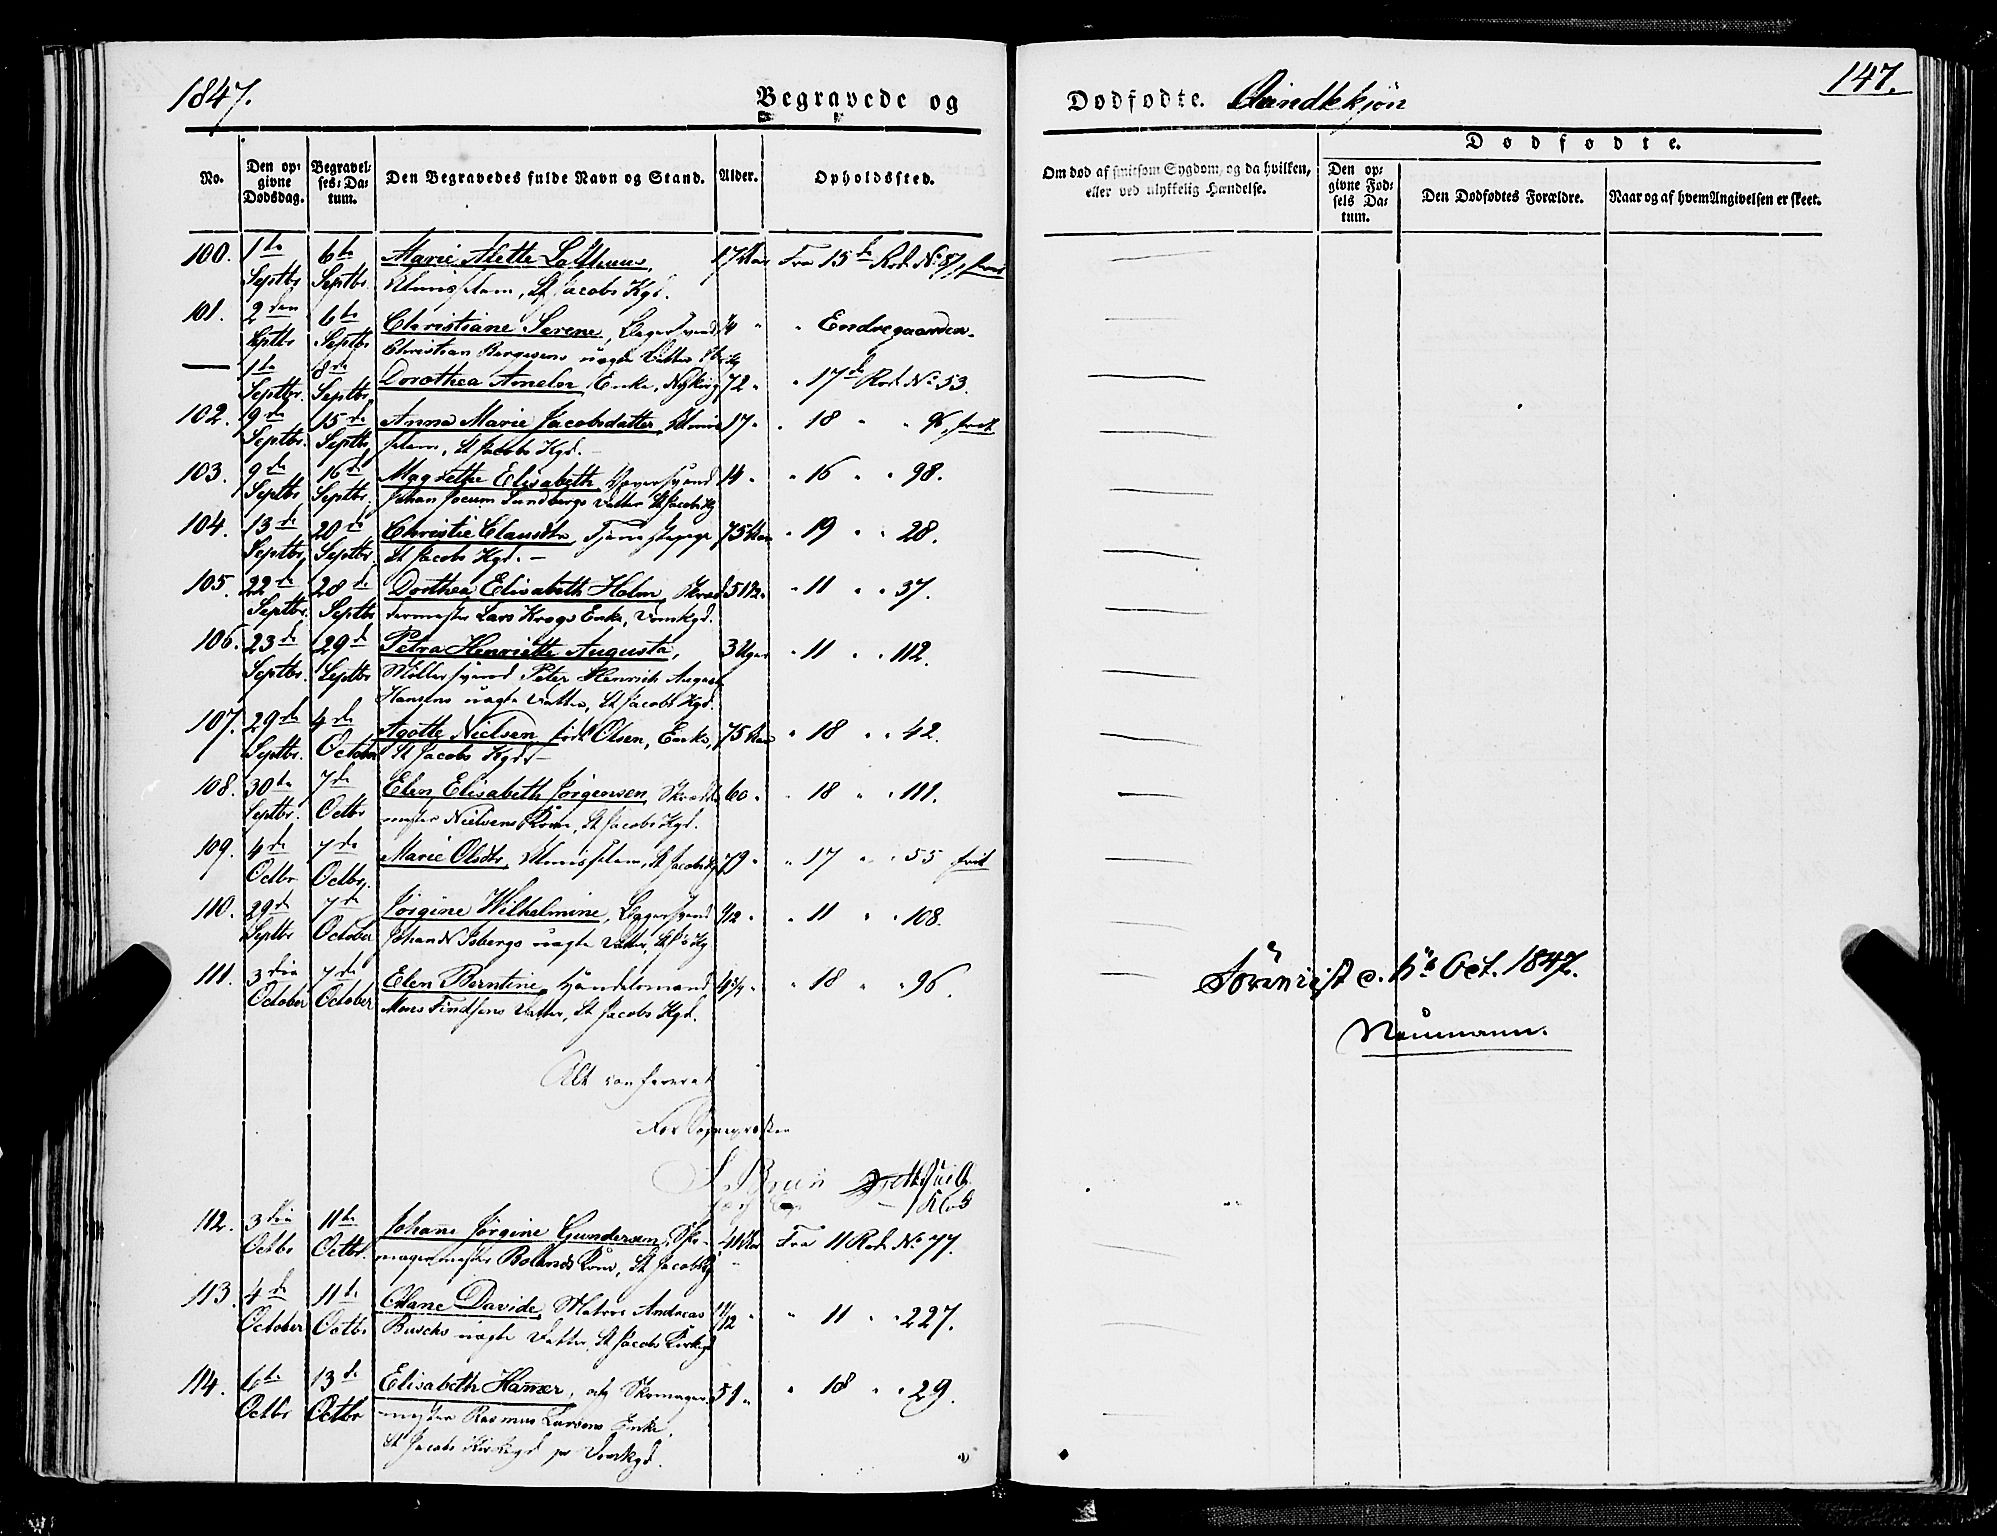 1847.
Begravede og Dødfødte. Qvindekjøn
147.
No.
Den opgivne Dødsdag.
Begravelses-Datum.
Den Begravedes fulde Navn og Stand.
Alder.
Opholdssted.
Om død af smitsom Sygdom, og da hvilken, eller ved ulykkelig Hændelse.
Dødfødte.
Den opgivne Fødsels Datum.
Den Dødfødtes Forældre.
Naar og af hvem Angivelsen er skeet.
100. 1ste 6te Marie Alette 17 Aar Fra 15de Rod. No 87, frit
Septbr. Septbr. Almisselem, St Jacobs Kgd.
101. 2den 6te Christiane Serene, Bagersvend 1/4 " " Endregaarden
Septbr Septbr. Christian Børgesens uægte Datter
— 1ste 8de Dorothea Ameln, Enke, Nykirk 72 " " 17de Rod. No 53.
Septbr. Septbr.
102. 9de 15de Anna Marie Jacobsdatter, Almis- 17 " " 18 " " frit
Septbr. Septbr. selem, St Jacobs Kgd. —
103. 9de 16de Magrethe Elisabeth, 14 " " 16 " " 98.
Septbr Septbr. Johan Jocum Sundbergs Datter St Jacobs Kg
104. 13de 20de Christie Clausdtr, Tjenestepige 75 Aar " 19 " " 28.
Septbr. Septbr. St Jacobs Kgd. —
105. 22de 28de Dorthea Elisabeth Holm, Skræd- 51 1/2 " " 11 " " 37.
Septbr. Septbr dermester Lars Krogs Enke, Domkgd.
106. 23de 29de Petra Henriette Augusta, 3 Uger " 11 " " 112.
Septbr. Septbr Møllersvend Peter Henrich August
Hansens uægte Datter, St Jacobs Kgd.
107. 29de 4de Agotte Nielsen født Olsen, Enke, 75 Aar " 18 " " 42.
Septbr. October St Jacobs Kgd. —
108. 30te 7de Elen Elisabeth Jørgensen, Skrædder 60 " " 18 " " 111.
Septbr. Octbr mester Nielsens Kone, St Jacobs Kgd.
109. 4de 7de Marie Olsdtr, Almisselem, St Jacobs Kg 79 " " 17 " " 55 frit
Octbr Octbr.
110. 29de 7de Jørgine Wilhelmine, Bagersvend 1/12 " " 11 " " 108.
Septbr October Isbergs uægte Datter, St J's Kg
111. 3die 7de Elen Berntine, Handelsmand 4 3/4 " " 18 " " 96.
October October Mons Findsens Datter, St Jacobs Kgd.
Oct. 1847.
Neumann.
Alt confereret
For Sognepræsten
Brun
112. 3die 11te Johanne Jørgine Gundersen, Sko- 41 Aar Fra 11 Rod. No 77.
Octbr Octbr. magermester Bolands Kone, St Jacobs Kg
113. 4de 11te Hane Davide, Matros Andreas 11/12 " " 11 " " 227.
October Octbr Buschs uægte Datter, St Jacobs Kirkegd
114. 6te 13de Elisabeth Hammer, Skomager- 51 " " 18 " " 29.
Octbr Octbr mester Rasmus Larsens Enke,
St Jacobs Kirkegd Domkgd.